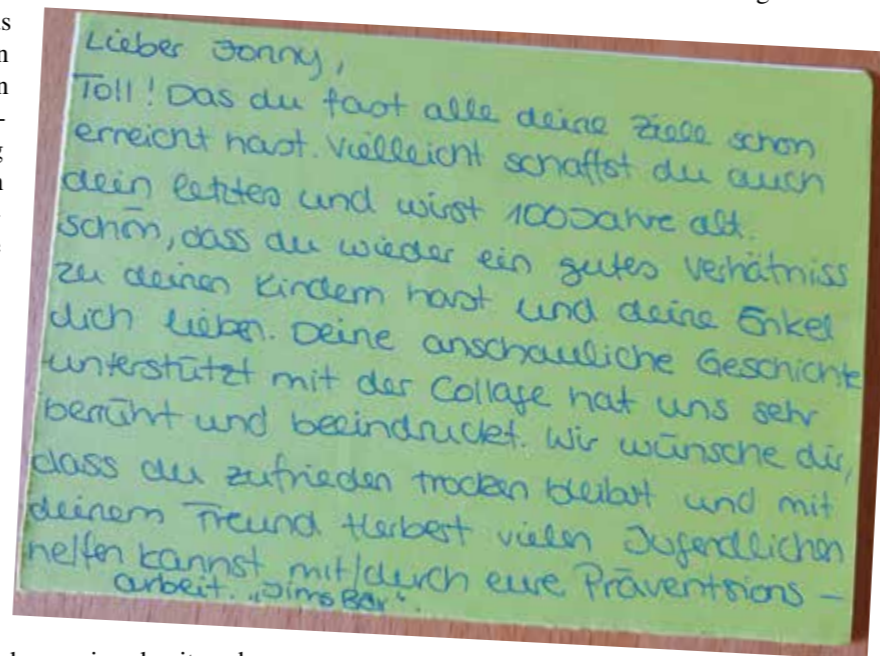 Lieber Jonny,
Toll! Das du fast alle deine Ziele schon
erreicht hast. Vielleicht schaffst du auch
dein letztes und wirst 100 Jahre alt.
Schön, dass du wieder ein gutes Verhätniss
zu deinen Kindern hast und deine Enkel
dich lieben. Deine anschauliche Geschichte
unterstützt mit der Collage hat uns sehr
berrührt und beeindrucket. Wir wünsche dir,
dass du zufrieden trocken bleibst und mit
deinem Freund Herbest vielen Jugendlichen
helfen kannst mit/durch eure Präventsions-
arbeit. „Jims Bar".